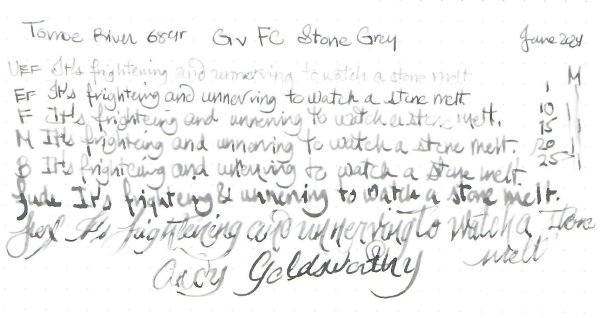 Tomoe River 68gr GvFC Stone Grey June 2024
UEF It's frightening and unnerving to watch a stone melt M
EF It's frighteing and unnerving to watch a stone melt. 1
F It's frighteing and unnerving to watch a stone melt. 10
M It's frighteing and unnerving to watch a stone melt. 15
B It's frighteing and unnerving to watch a stone melt. 20
25
fude It's frighteng & unnerving to watch a stone melt.
It's frightening and unnerving to watch a stone
melt
Andy Goldsworthy